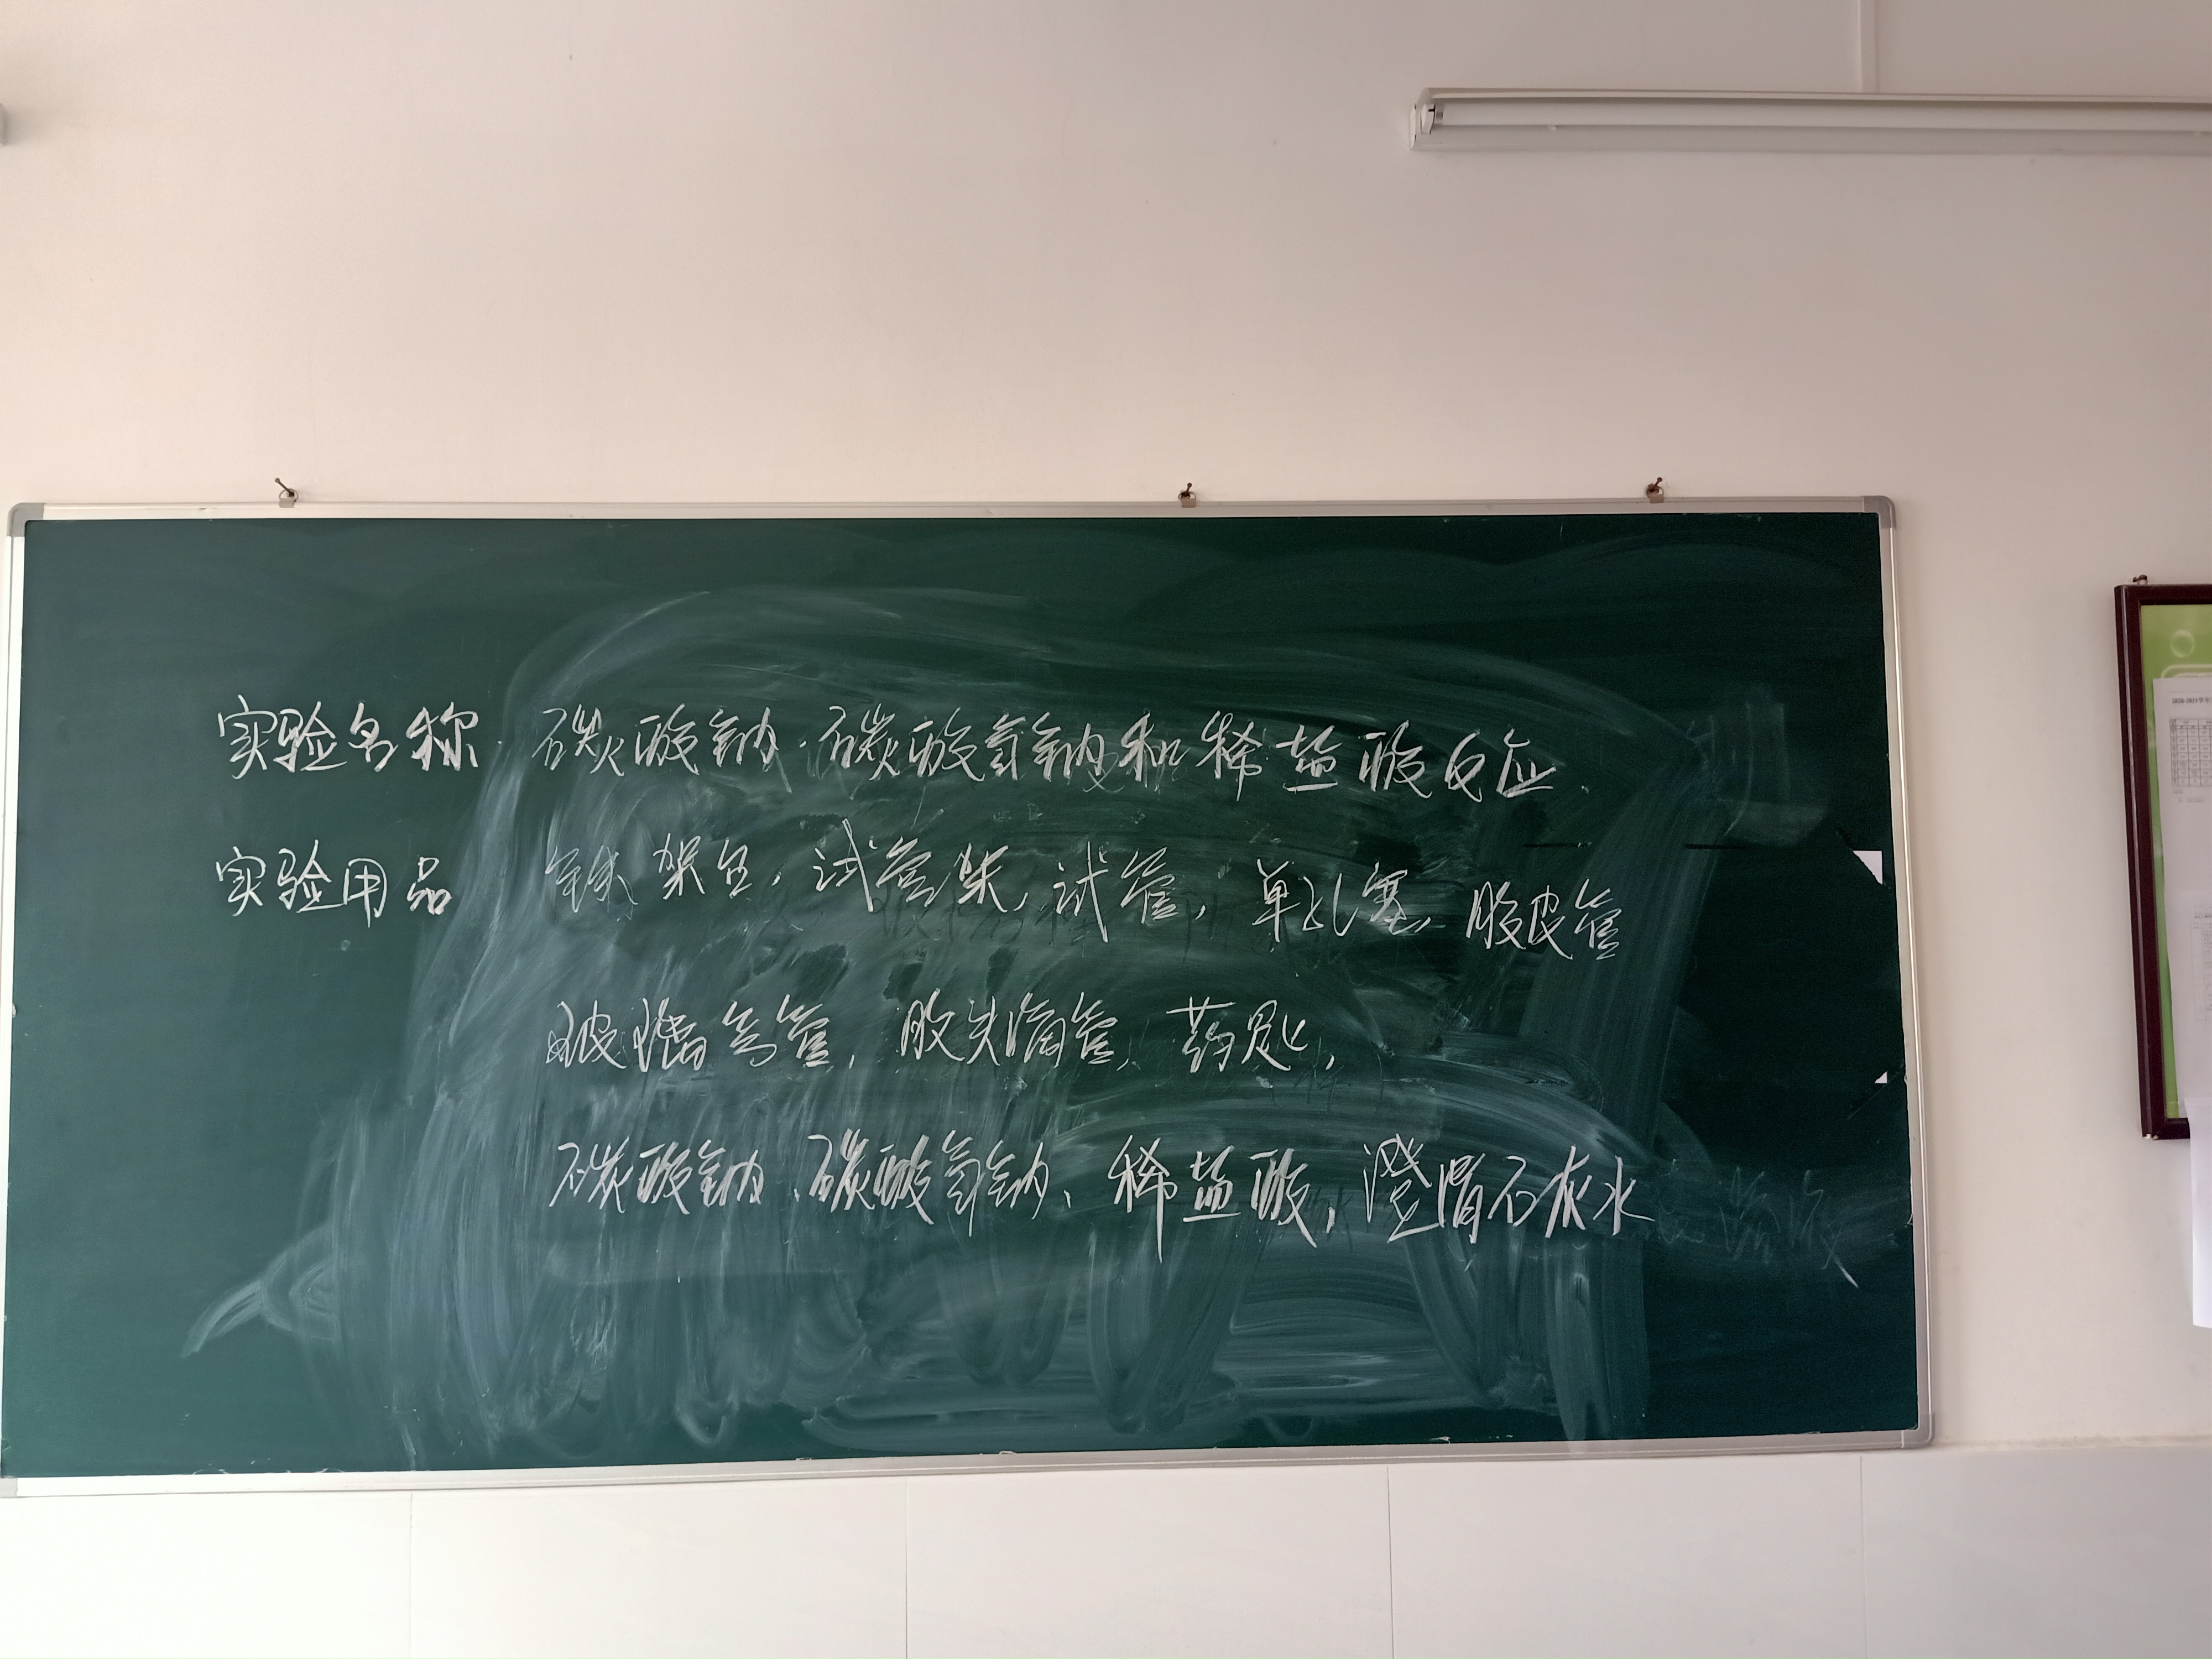 实验名称 碳酸钠、碳酸氢钠和稀盐酸反应.
实验用品 铁架台, 试管架, 试管, 单孔塞, 胶皮管
玻璃弯管, 胶头滴管, 药匙,
碳酸钠、碳酸氢钠、稀盐酸, 澄清石灰水